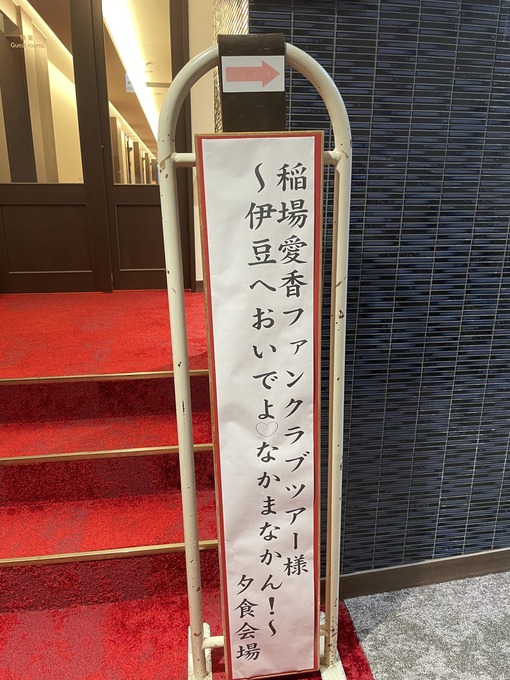 稲場愛香ファンクラブツアー様
～伊豆へおいでよ♡なかまなかん！～
夕食会場
Guest rooms